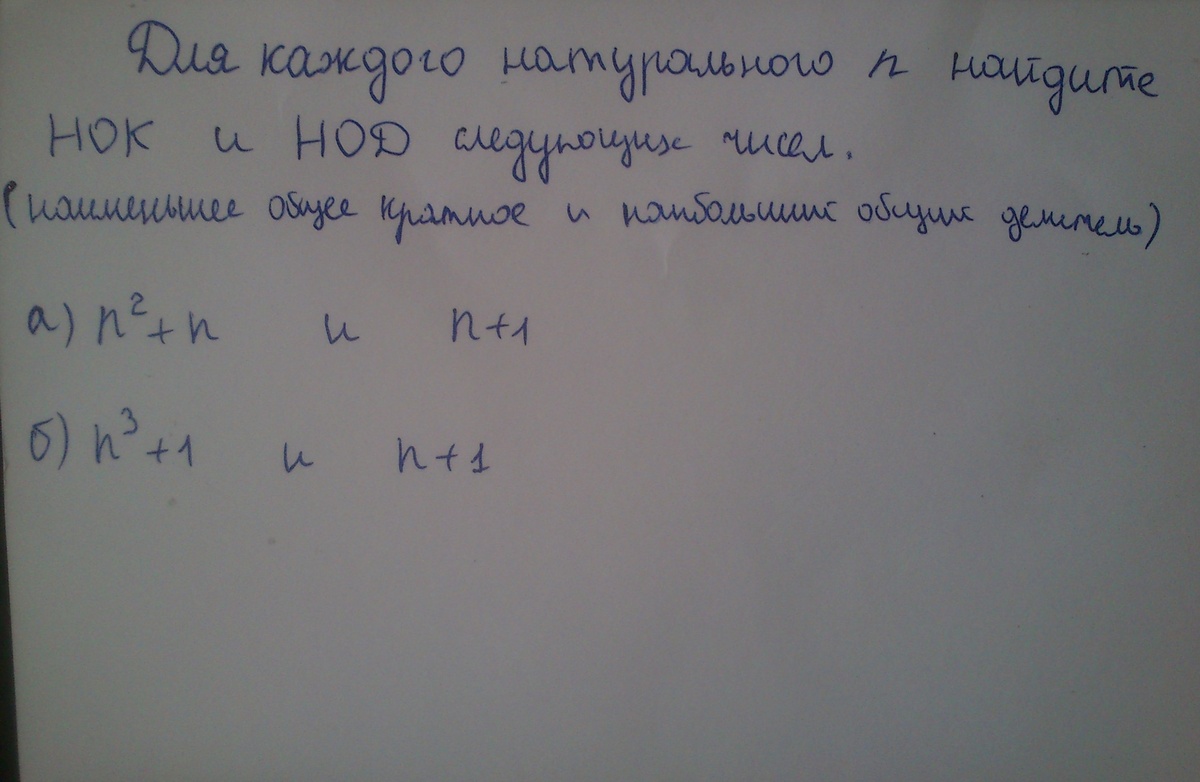 Для каждого натурального n найдите
НОК и НОД следующих чисел.
(наименьшее общее кратное и наибольший общий делитель)
а) n²+n и n+1
б) n³+1 и n+1